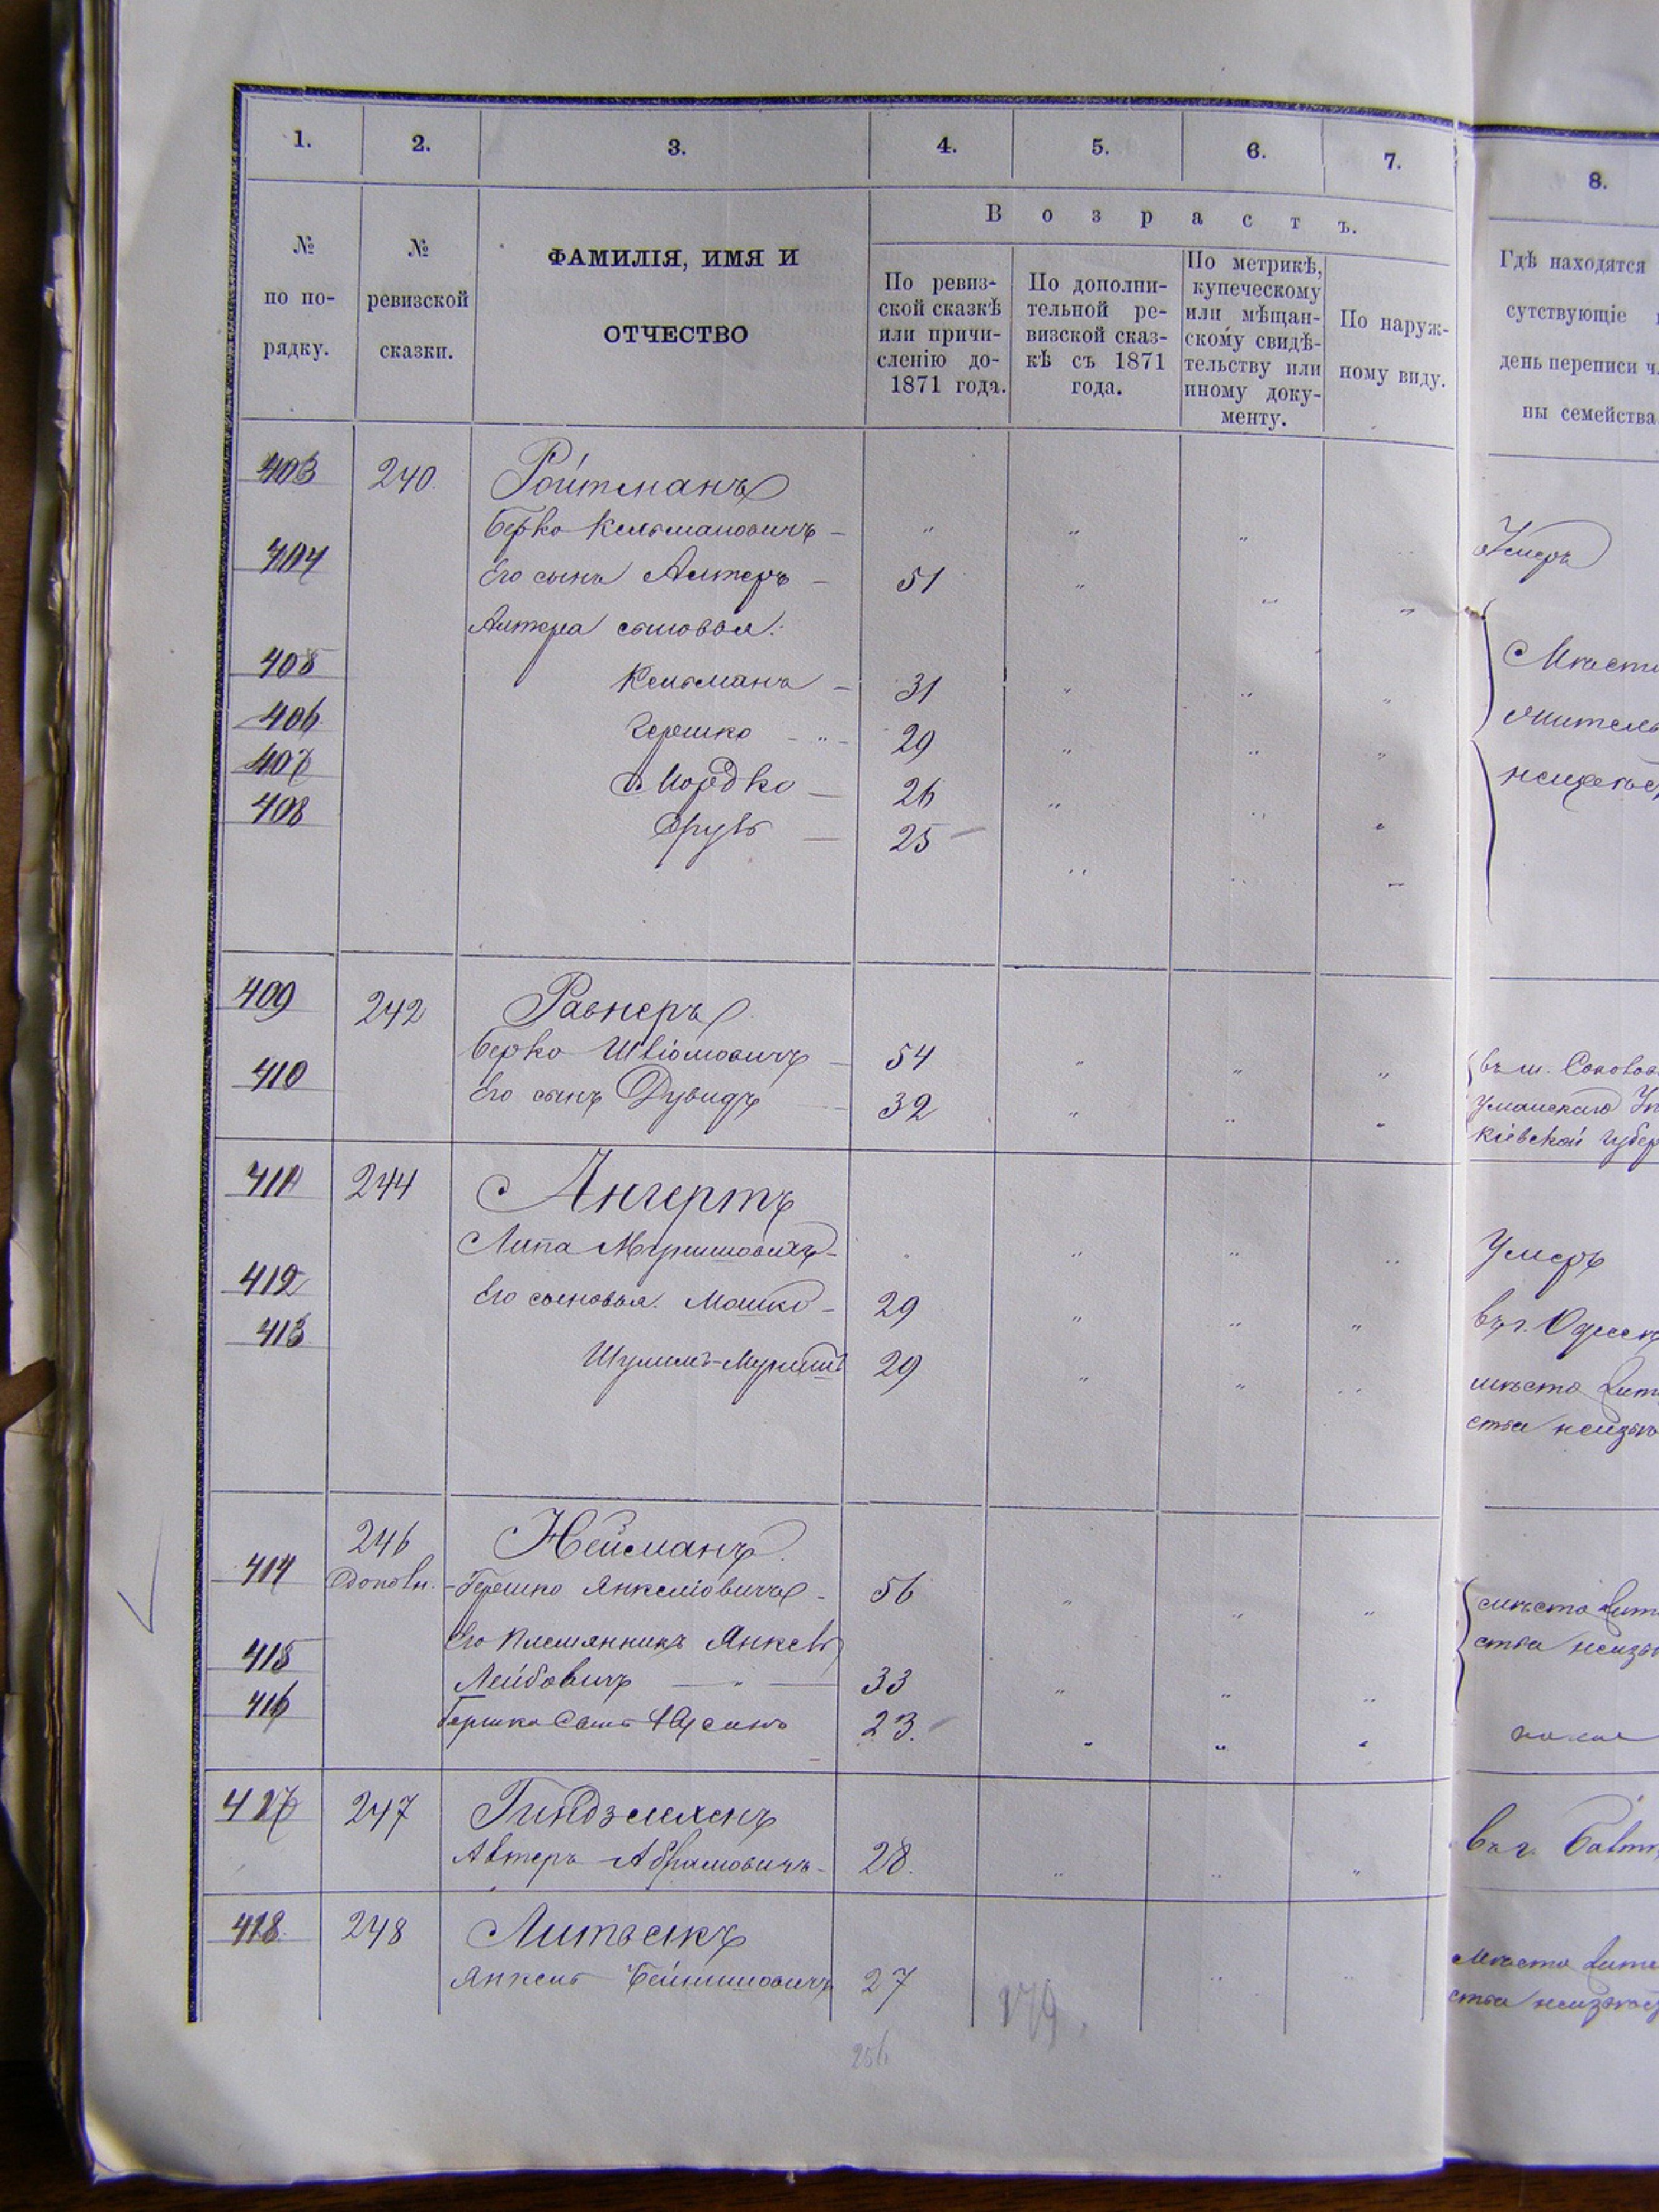 1. 2. 3. 4. 5. 6. 7. 8.
№ по по-рядку.
№ ревизской сказки.
ФАМИЛІЯ, ИМЯ И ОТЧЕСТВО
Возрастъ.
По ревиз-
ской сказкѣ
или причи-
сленію до-
1871 года.
По дополни-
тельной ре-
визской сказ-
кѣ съ 1871
года.
По метрикѣ,
купеческому
или мѣщан-
скому свидѣ-
тельству или
иному доку-
менту.
По наруж-
ному виду.
Гдѣ находятся
сутствующіе
день переписи ч
ны семейства
403 240 Ройтманъ
Берко Кельмановичъ - " " " Умеръ
404 Его сынъ Алтеръ - 51 " " "
Алтера сыновья:
405 Кельманъ - 31 " " " Мѣсто
406 Гершко - " - 29 " " " жительс
407 Мордко - 26 " " " неизвѣс
408 Сруль - 25 " " "
409 242 Равнеръ
Берко Шліомовичъ - 54 " " " въ м.
410 Его сынъ Дувидъ - 32 " " " Уманскаго
Кіевской губер
411 244 Ангертъ
Липа Мортковичъ - " " " " Умеръ
412 Его сыновья. Мошко - 29 " " " въ г. Одессѣ
413 Шулимъ- 29 " " " мѣсто жит
ства неизвѣ
246 Нейманъ
414 Гершко Янкеліовичъ - 56 " " " мѣсто жит
415 Его племянникъ Янкель ства неизвѣ
Лейбовичъ - " - 33 " " "
416 Гершка сынъ 23. " " "
417 247
Алтеръ Абрамовичъ - 28. " " " въ г. Балт
418 248 Литвакъ
Янкель 27 " " мѣсто жите
ства неизвѣс
179.
256